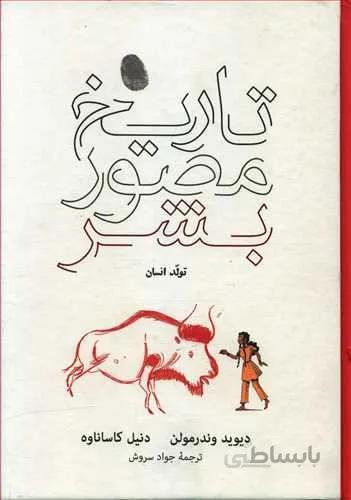 تاریخ
مصور
بشر
تولّد انسان
دیوید وندرمولن   دنیل کاساناوه
ترجمهٔ جواد سروش
باباسطی